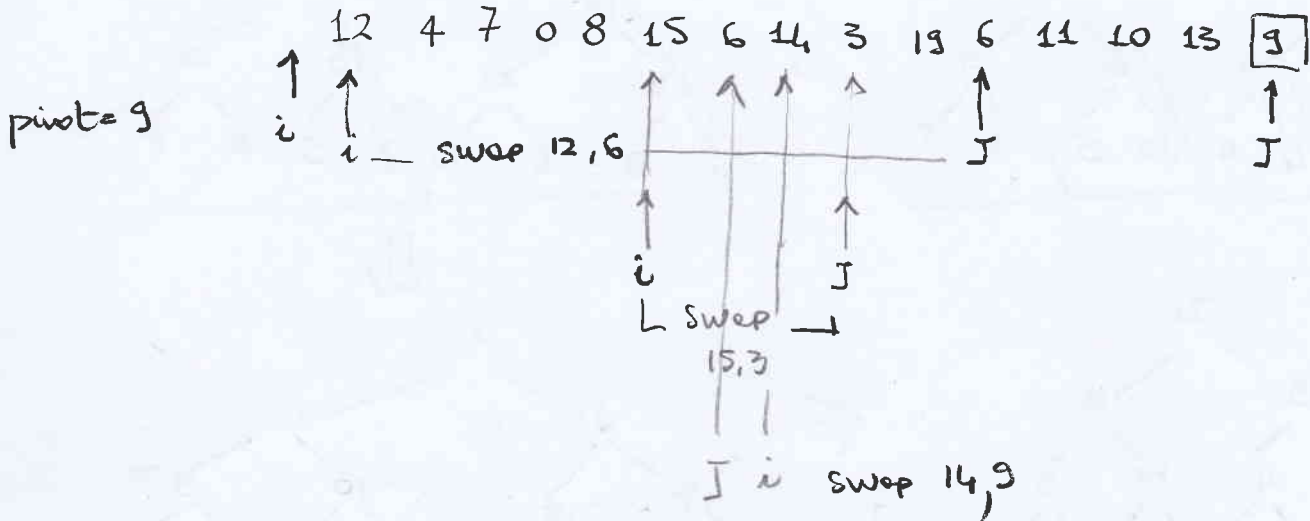 12 4 7 0 8 15 6 14 3 19 6 11 10 13 9
pivot= 9
i
J
i swap 12,6 J
i J
swap
15,3
J i swap 14,9